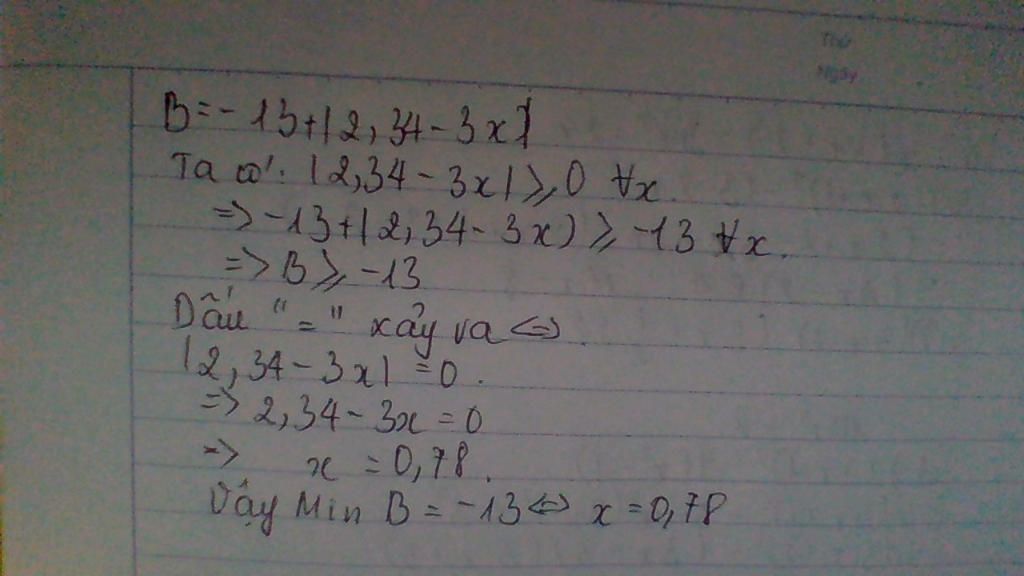 Thứ
Ngày
B=-13+|2,34-3x|
Ta có: |2,34-3x|⩾0 ∀x
=> -13+|2,34-3x)⩾-13 ∀x.
=> B⩾-13
Dấu "=" xảy ra <=>
|2,34-3x|=0.
=> 2,34-3x=0
=> x=0,78.
Vậy Min B=-13<=> x=0,78